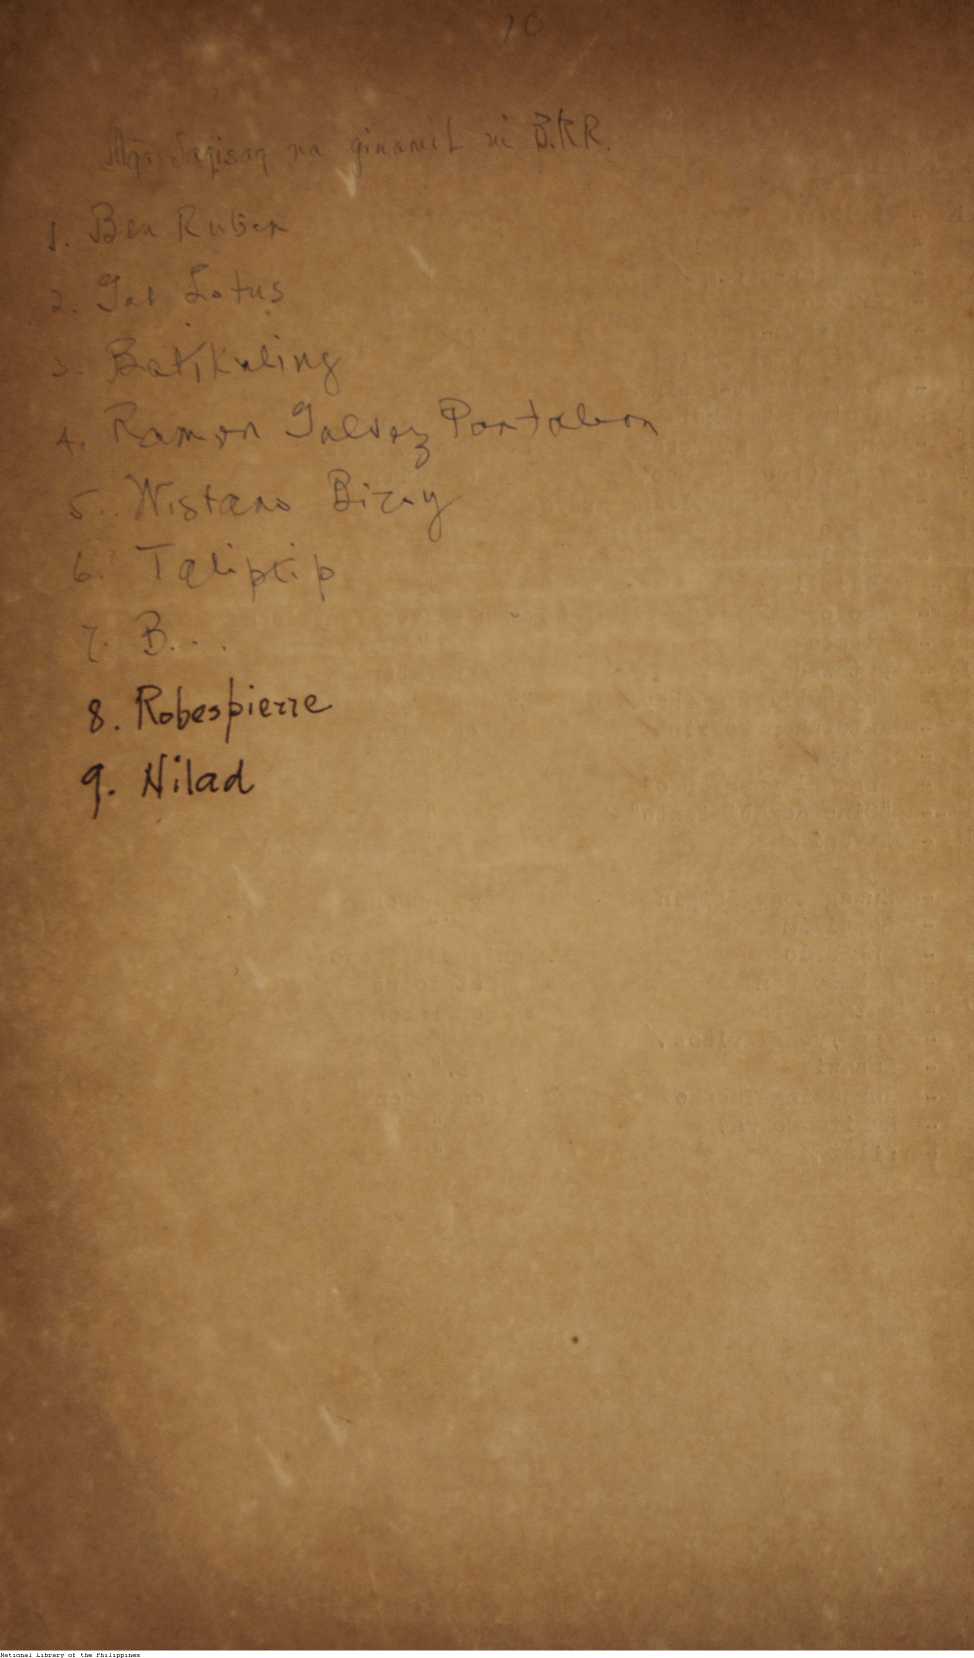 10
Mga Sagisag na ginamit ni B.R.R.
1. Ben Ruben
2. Gat Lotus
3. Batikuling
4. Ramon Galvez Pantaleon
5. Wistano Biroy
6. Taliptip
7. B...
8. Robespierre
9. Nilad
National Library of the Philippines